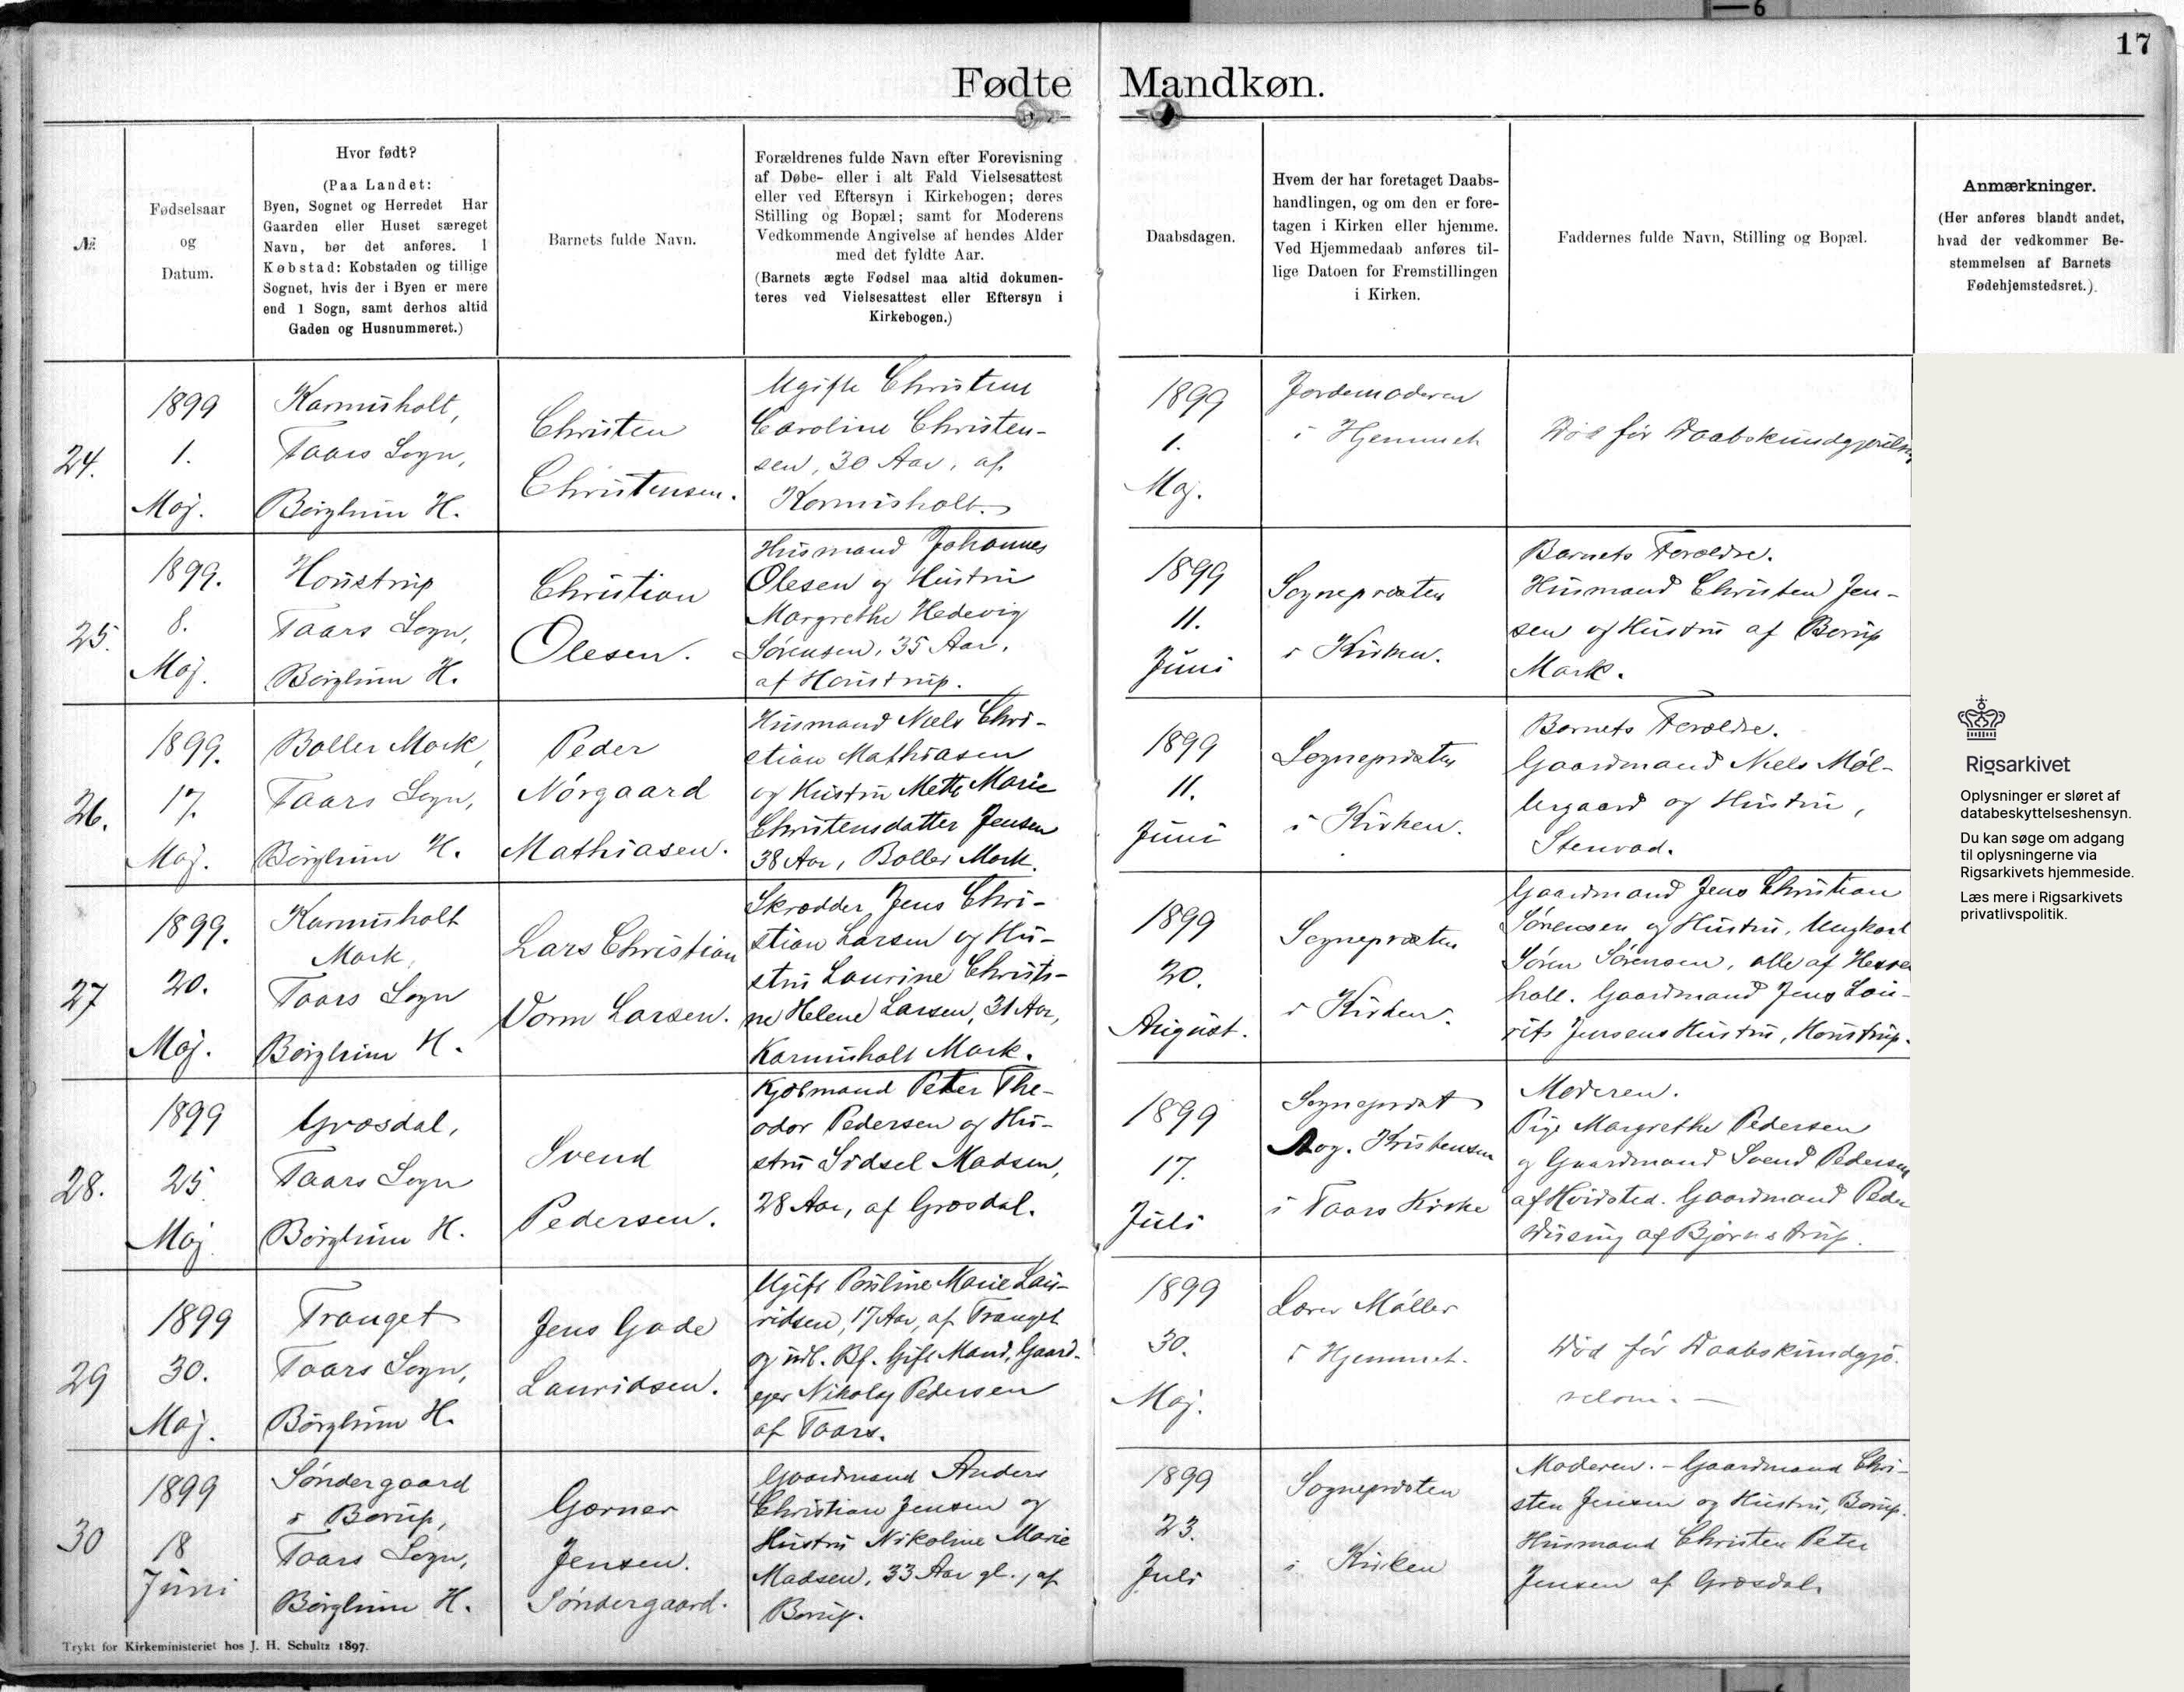 6
17
Fødte Mandkøn.
№
Fødselsaar
og
Datum.
Hvor født?
(Paa Landet:
Byen, Sognet og Herredet Har
Gaarden eller Huset særeget
Navn, bør det anføres. I
Købstad: Købstaden og tillige
Sognet, hvis der i Byen er mere
end 1 Sogn, samt derhos altid
Gaden og Husnummeret.)
Barnets fulde Navn.
Forældrenes fulde Navn efter Forevisning
af Døbe- eller i alt Fald Vielsesattest
eller ved Eftersyn i Kirkebogen; deres
Stilling og Bopæl; samt for Moderens
Vedkommende Angivelse af hendes Alder
med det fyldte Aar.
(Barnets ægte Fødsel maa altid dokumen-
teres ved Vielsesattest eller Eftersyn i
Kirkebogen.)
Daabsdagen.
Hvem der har foretaget Daabs-
handlingen, og om den er fore-
tagen i Kirken eller hjemme.
Ved Hjemmedaab anføres til-
lige Datoen for Fremstillingen
i Kirken.
Faddernes fulde Navn, Stilling og Bopæl.
Anmærkninger.
(Her anføres blandt andet,
hvad der vedkommer Be-
stemmelsen af Barnets
Fødehjemstedsret.)
24.
1899
1.
Maj.
Karmisholt,
Taars Sogn,
Børglum H.
Christen
Christensen.
Ugifte Christine
Caroline Christen-
sen, 30 Aar, af
Karmisholt.
1899
1.
Maj.
Jordemoderen
i Hjemmet
Død før Daabskundgjørelsen
25.
1899.
8.
Maj.
Houstrup
Taars Sogn,
Børglum H.
Christian
Olesen.
Husmand Johannes
Olesen og Hustru
Margrethe Hedevig
Sørensen, 35 Aar,
af Houstrup.
1899
11.
Juni
Sognepræsten
i Kirken.
Barnets Forældre.
Husmand Christen Jen-
sen og Hustru af Borup
Mark.
26.
1899.
17.
Maj.
Boller Mark,
Taars Sogn,
Børglum H.
Peder
Nørgaard
Mathiasen.
Husmand Niels Chri-
stian Mathiasen
og Hustru Mette Marie
Christensdatter Jensen
38 Aar, Boller Mark.
1899
11.
Juni
Sognepræsten
i Kirken.
Barnets Forældre.
Gaardmand Niels Møl-
lergaard og Hustru,
Stenvad.
27
1899.
20.
Maj.
Karmisholt
Mark,
Taars Sogn
Børglum H.
Lars Christian
Vorm Larsen.
Skrædder Jens Chri-
stian Larsen og Hu-
stru Laurine Christi-
ne Helene Larsen, 31 Aar,
Karmisholt Mark.
1899
20.
August.
Sognepræsten
i Kirken.
Gaardmand Jens Christian
Sørensen og Hustru, Ungkarl
Søren Sørensen, alle af
Gaardmand Jens Lau-
rits Jensens Hustru, Houstrup.
28.
1899
25
Maj
Græsdal,
Taars Sogn
Børglum H.
Svend
Pedersen.
Kjøbmand Peter The-
odor Pedersen og Hu-
stru Sidsel Madsen,
28 Aar, af Græsdal.
1899
17.
Juli
Sognepræst
Aog. Kristensen
i Taars Kirke
Moderen.
Pige Margrethe Pedersen
og Gaardmand Svend Pedersen
af Hvidsted. Gaardmand Peder
af Bjørnstrup.
29
1899
30.
Maj.
Tranget
Taars Sogn,
Børglum H.
Jens Gade
Lauridsen.
Ugift Pouline Marie Lau-
ridsen, 17 Aar, af Tranget
og udl. Bf. Gift Mand, Gaard-
ejer Nikolaj Pedersen
af Taars.
1899
30.
Maj.
Lærer Møller
i Hjemmet.
Død før Daabskundgjø-
relsen. —
30
1899
18
Juni
Søndergaard
i Borup,
Taars Sogn,
Børglum H.
Gørner
Jensen.
Søndergaard.
Gaardmand Anders
Christian Jensen og
Hustru Nikoline Marie
Madsen, 33 Aar gl., af
Borup.
1899
23.
Juli
Sognepræsten
i Kirken
Moderen. - Gaardmand Chri-
sten Jensen og Hustru, Borup.
Husmand Christen Peter
Jensen af Græsdal.
Trykt for Kirkeministeriet hos J. H. Schultz 1897.
Rigsarkivet
Oplysninger er sløret af
databeskyttelseshensyn.
Du kan søge om adgang
til oplysningerne via
Rigsarkivets hjemmeside.
Læs mere i Rigsarkivets
privatlivspolitik.